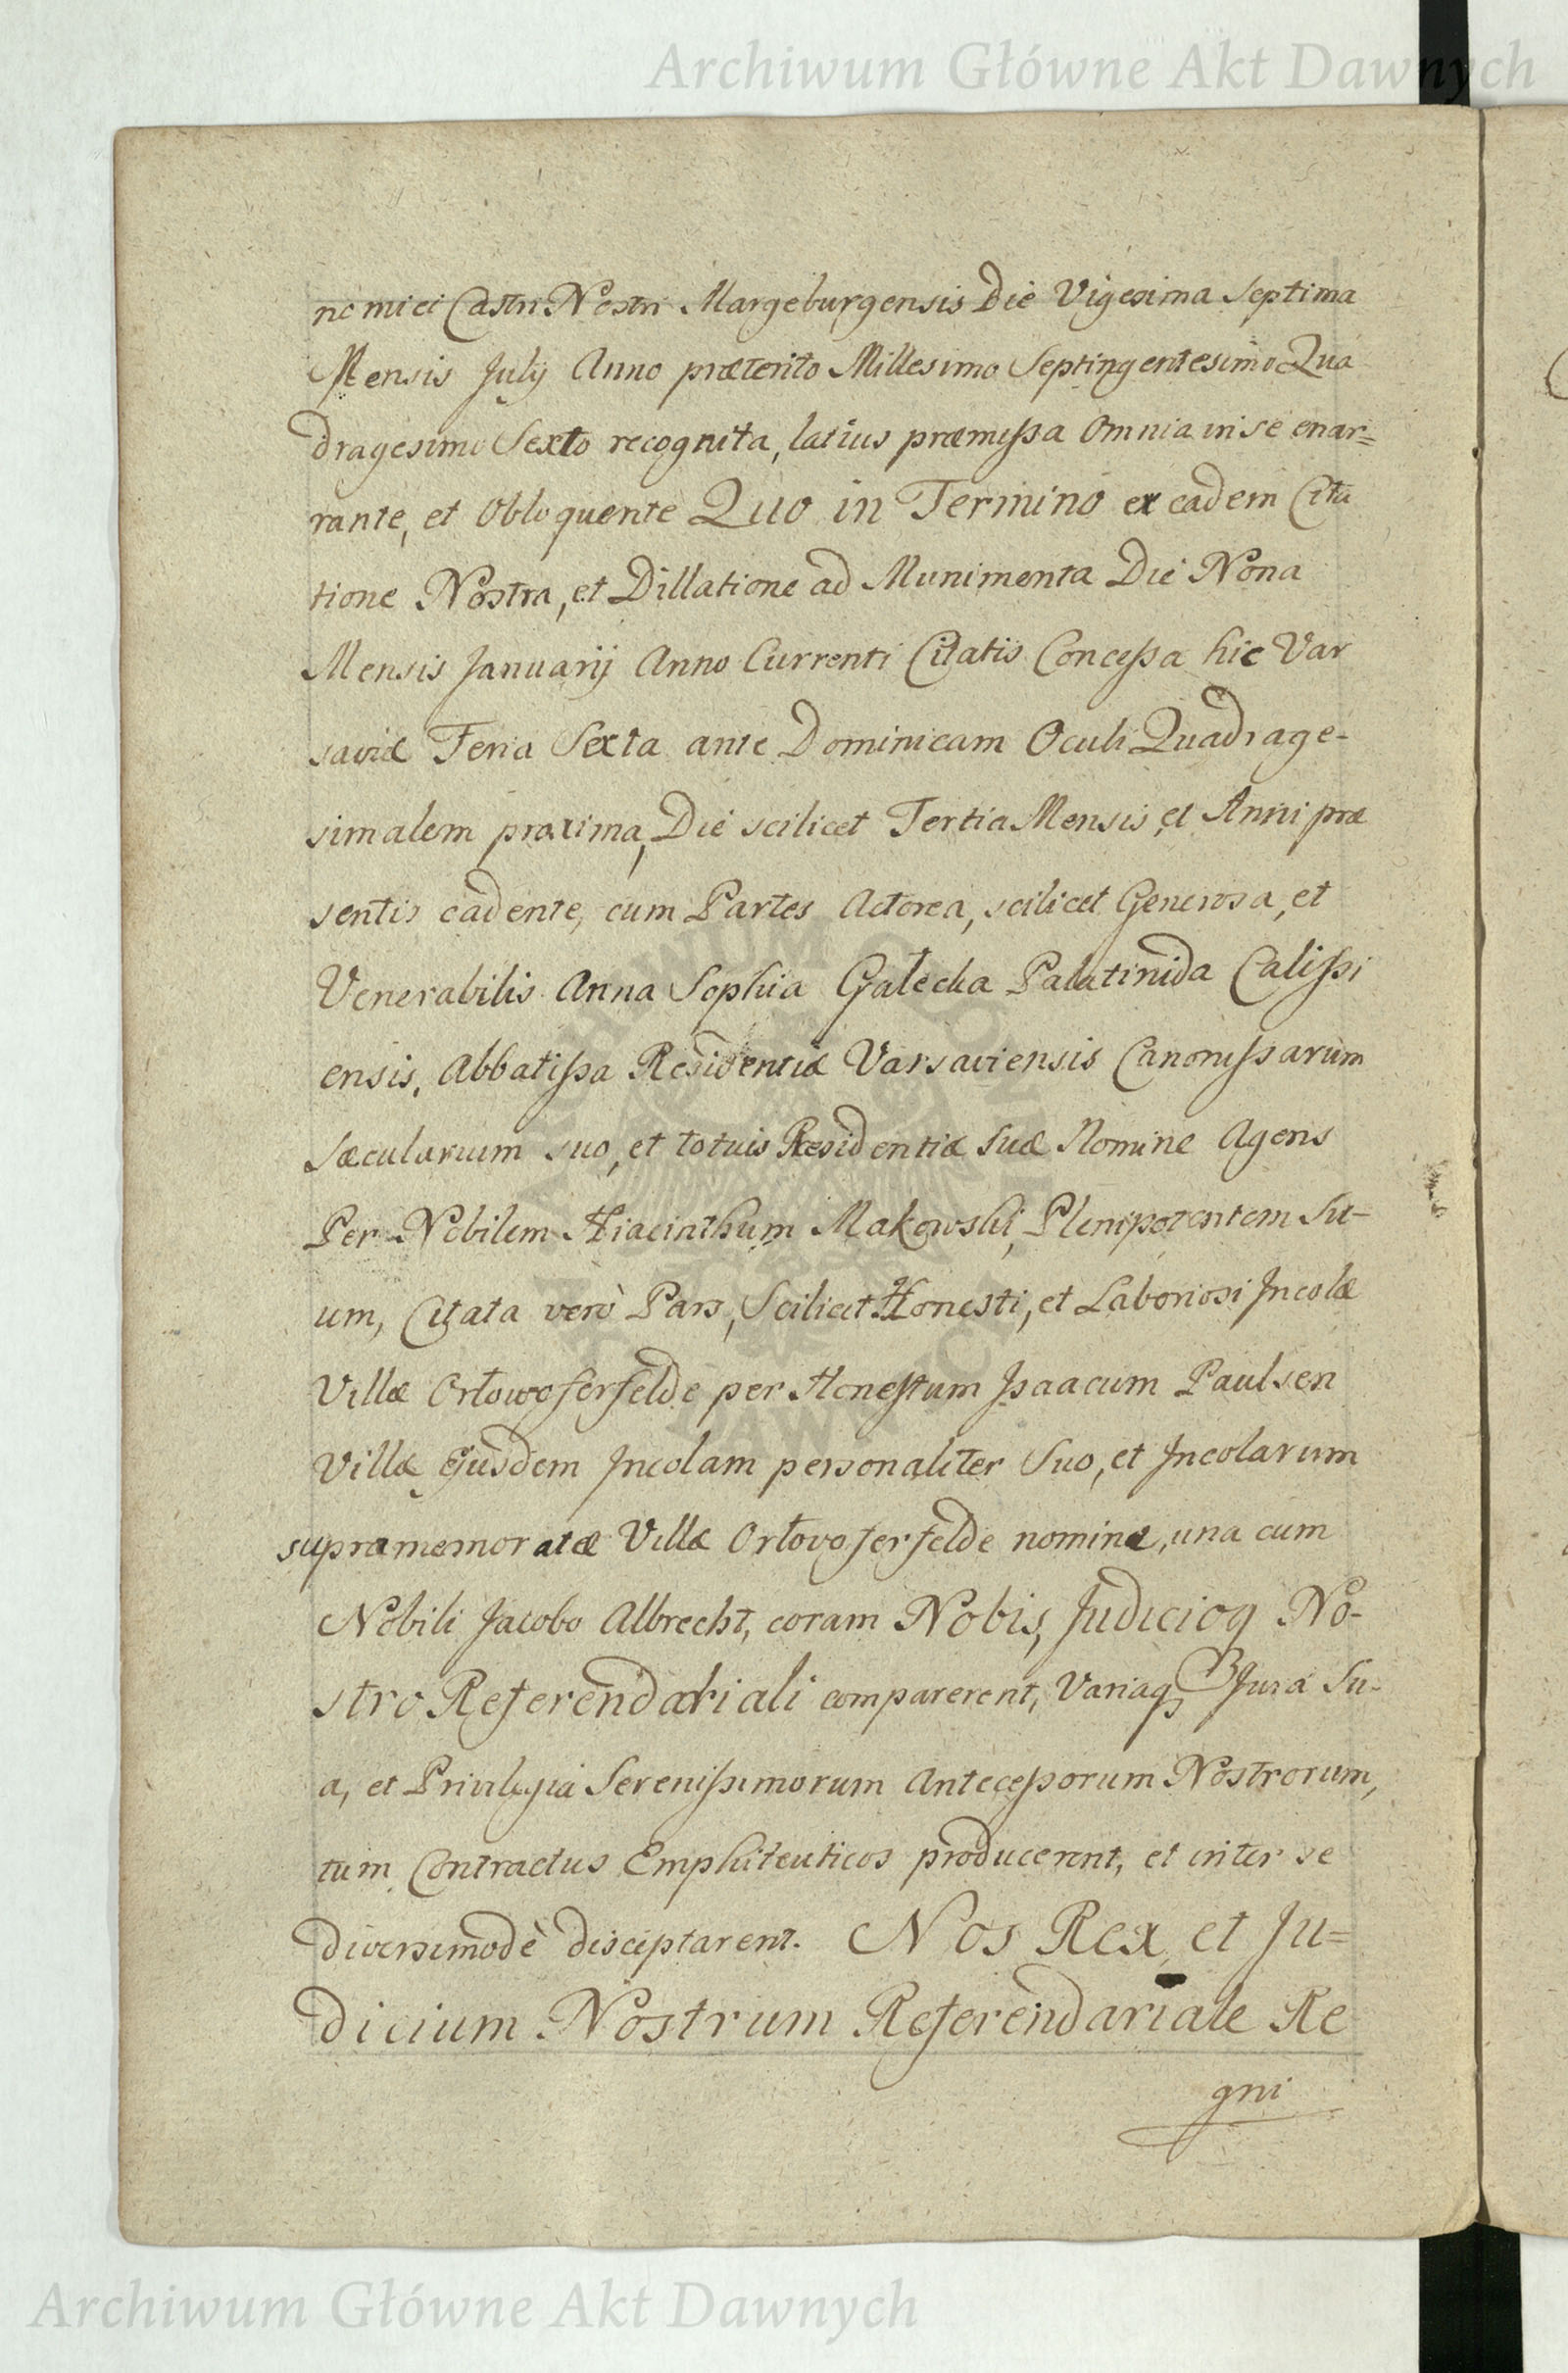 Archiwum Główne Akt Dawnych
nomici Castri Nostri Margeburgensis Die Vigesima Septima
Mensis July Anno præterito Millesimo Septingentesimo Qua
dragesimo Sexto recognita, latius præmissa Omnia in se enar=
rante, et Obloquente Quo in Termino ex eadem Cita
tione Nostra, et Dillatione ad Munimenta Die Nona
Mensis Januarij Anno Currenti Citatis Concessa hic Var
saviæ Feria Sexta ante Dominicam Oculi Quadrage-
simalem proxima, Die scilicet Tertia Mensis, et Anni præ
sentis cadente, cum Partes Actorea, scilicet Generosa, et
Venerabilis Anna Sophia Gałecka Palatinida Calissi
ensis, Abbatissa Residentiæ Varsaviensis Canonissarum
Sæcularium suo, et totuis Residentiæ Suæ Nomine Agens
Per Nobilem Hiacinthum Makowski, Plenipotentem Su-
um, Citata verò Pars, Scilicet Honesti, et Laboriosi Incolæ
Villæ Orłowoferfelde per Honestum Isaacum Paulsen
Villæ Ejusdem Incolam personaliter Suo, et Incolarum
supramemoratæ Villæ Orłovoferfelde nomine, una cum
Nobili Jacobo Albrecht, coram Nobis, Judicioq No-
stro Referendariali comparerent, Variaq Jura Su-
a, et Privilegia Serenissimorum Antecessorum Nostrorum,
tum Contractus Emphiteuticos producerent, et inter se
diversimodè disciptarent. Nos Rex, et Ju=
dicium Nostrum Referendariale Re
gni
ARCHIWUM GŁÓWNE AKT DAWNYCH
Archiwum Główne Akt Dawnych